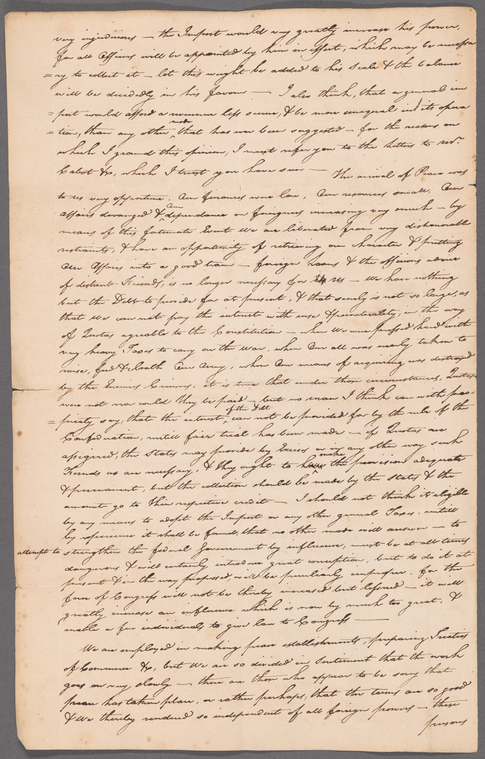 very injurious — the Impost would very greatly increase his power,
for all Officers will be appointed by him in effect, which may be necessa
=ry to collect it — let this weight be added to his Scale & the balance
will be decidedly in his favor — I also think, that a general im
=post would afford a revenue less secure, & be more unequal in its opera
=tion, than any other mode, that has ever been suggested — for the reasons on
which I ground this opinion, I must refer you to the letters to
&c, which I trust you have seen — The arrival of Peace was
to us very opportune, Our finances were low, Our resources small, Our
affairs deranged & Our dependance on foreigners increasing very much — by
means of this fortunate Event we are liberated from very dishonorable
restraints, & have an opportunity of retrieving our Character & putting
Our Affairs into a good train — foreign Loans & the officious advice
of distant Friends, is no longer necessary for Us — We have nothing
but the Debt to provide for at present, & that surely is not so large, as
that we can not pay the interest with ease & punctuality, in the way
of Quotas agreable to the Constitution — when we were pressed hard with
very heavy Taxes to carry on the War, when Our all was nearly taken to
raise, feed & cloath Our Army, when Our means of acquiring was destroyed
by the Enemies Cruisers, it is true that under those circumstances, Quotas
were not nor could they be paid — but no man I think can with pro
=priety say, that the interest of the Debt can not be provided for by the rule of the
Confederation, untill fair trial has been made — if Quotas are
assigned, the States may provide by Excises or in any other way such
Funds as are necessary, & they ought to make the provision adequate
& permanent, but the collection should be made by the States & the
amount go to their respective credit — I should not think it eligible
by any means to adopt the Impost or any other general Taxes, untill
by experience it shall be found, that no other mode will answer — to
attempt to strengthen the federal Government by influence, must be at all times
dangerous & will certainly introduce great corruption, but to do it at
present & in the way proposed, will be peculiarly improper, for the
force of Congress will not be thereby increased but lessened — it will
greatly increase an influence which is now by much too great, &
enable a few individuals to give law to Congress —
We are employed in making peace establishments, preparing Treaties
of Commerce &c, but we are so decided in Sentiment that the work
goes on very slowly — there are those who appear to be sorry that
peace has taken place, or rather perhaps, that the terms are so good
& We thereby rendered so independent of all foreign powers — these
persons